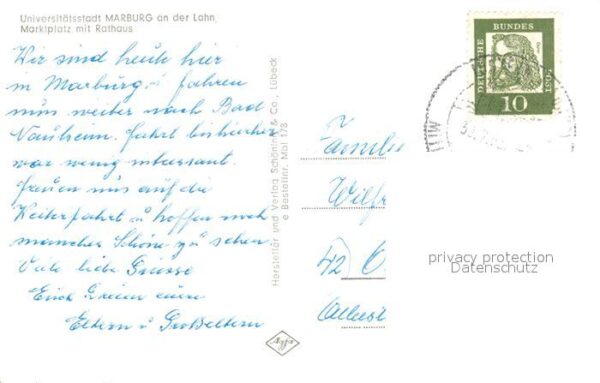 Universitätsstadt MARBURG an der Lahn,
Marktplatz mit Rathaus
Wir sind heute hier
in Marburg u. fahren
nun weiter nach Bad
Nauheim. Fahrt bis hierher
war wenig interessant.
Freuen uns auf die
Weiterfahrt u hoffen noch
manches Schöne zu sehen.
Viele liebe Grüsse
Eure
Eltern u Großeltern
Hersteller und Verlag Schöning & Co., Lübeck
Bestellnr. Mal 178
Agfa
DEUTSCHE
BUNDES
POST
10
Familie
Wilfr
42 O
privacy protection
Datenschutz